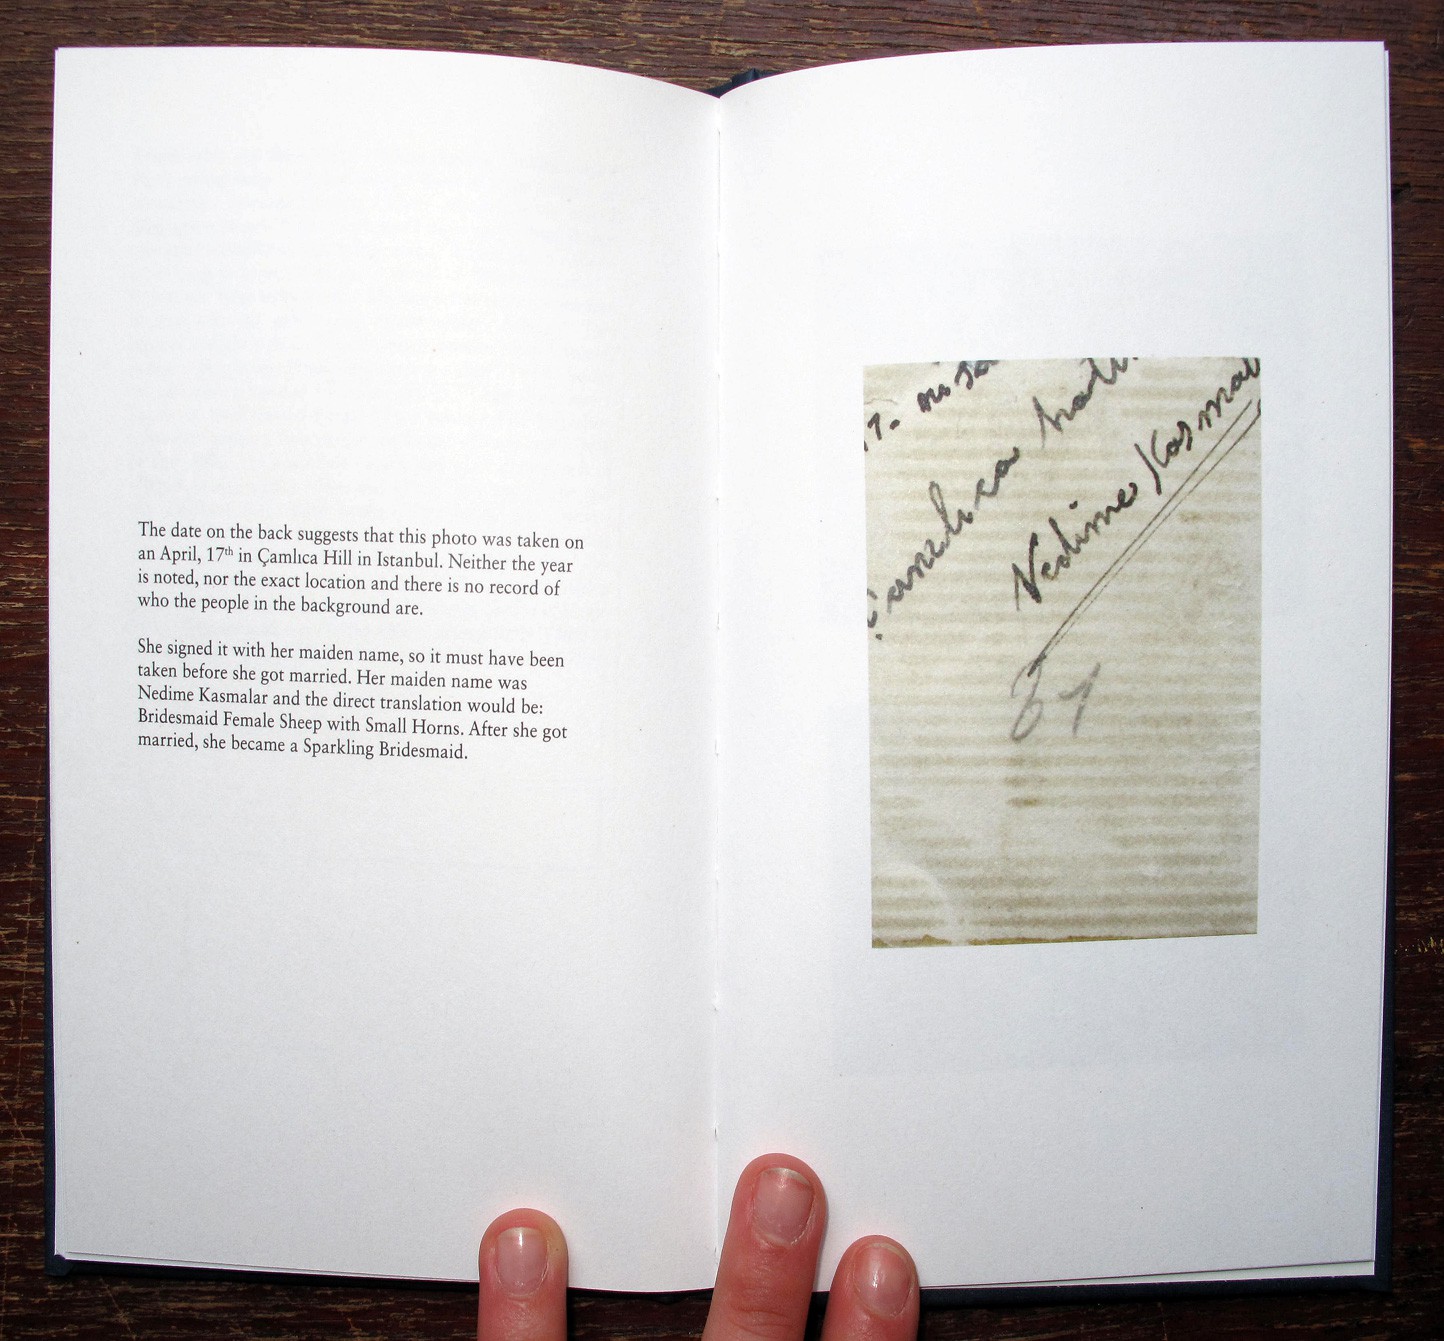 The date on the back suggests that this photo was taken on
an April, 17th in Çamlıca Hill in Istanbul. Neither the year
is noted, nor the exact location and there is no record of
who the people in the background are.
She signed it with her maiden name, so it must have been
taken before she got married. Her maiden name was
Nedime Kasmalar and the direct translation would be:
Bridesmaid Female Sheep with Small Horns. After she got
married, she became a Sparkling Bridesmaid.
17-
Çamlıca
Nedime Kasmal